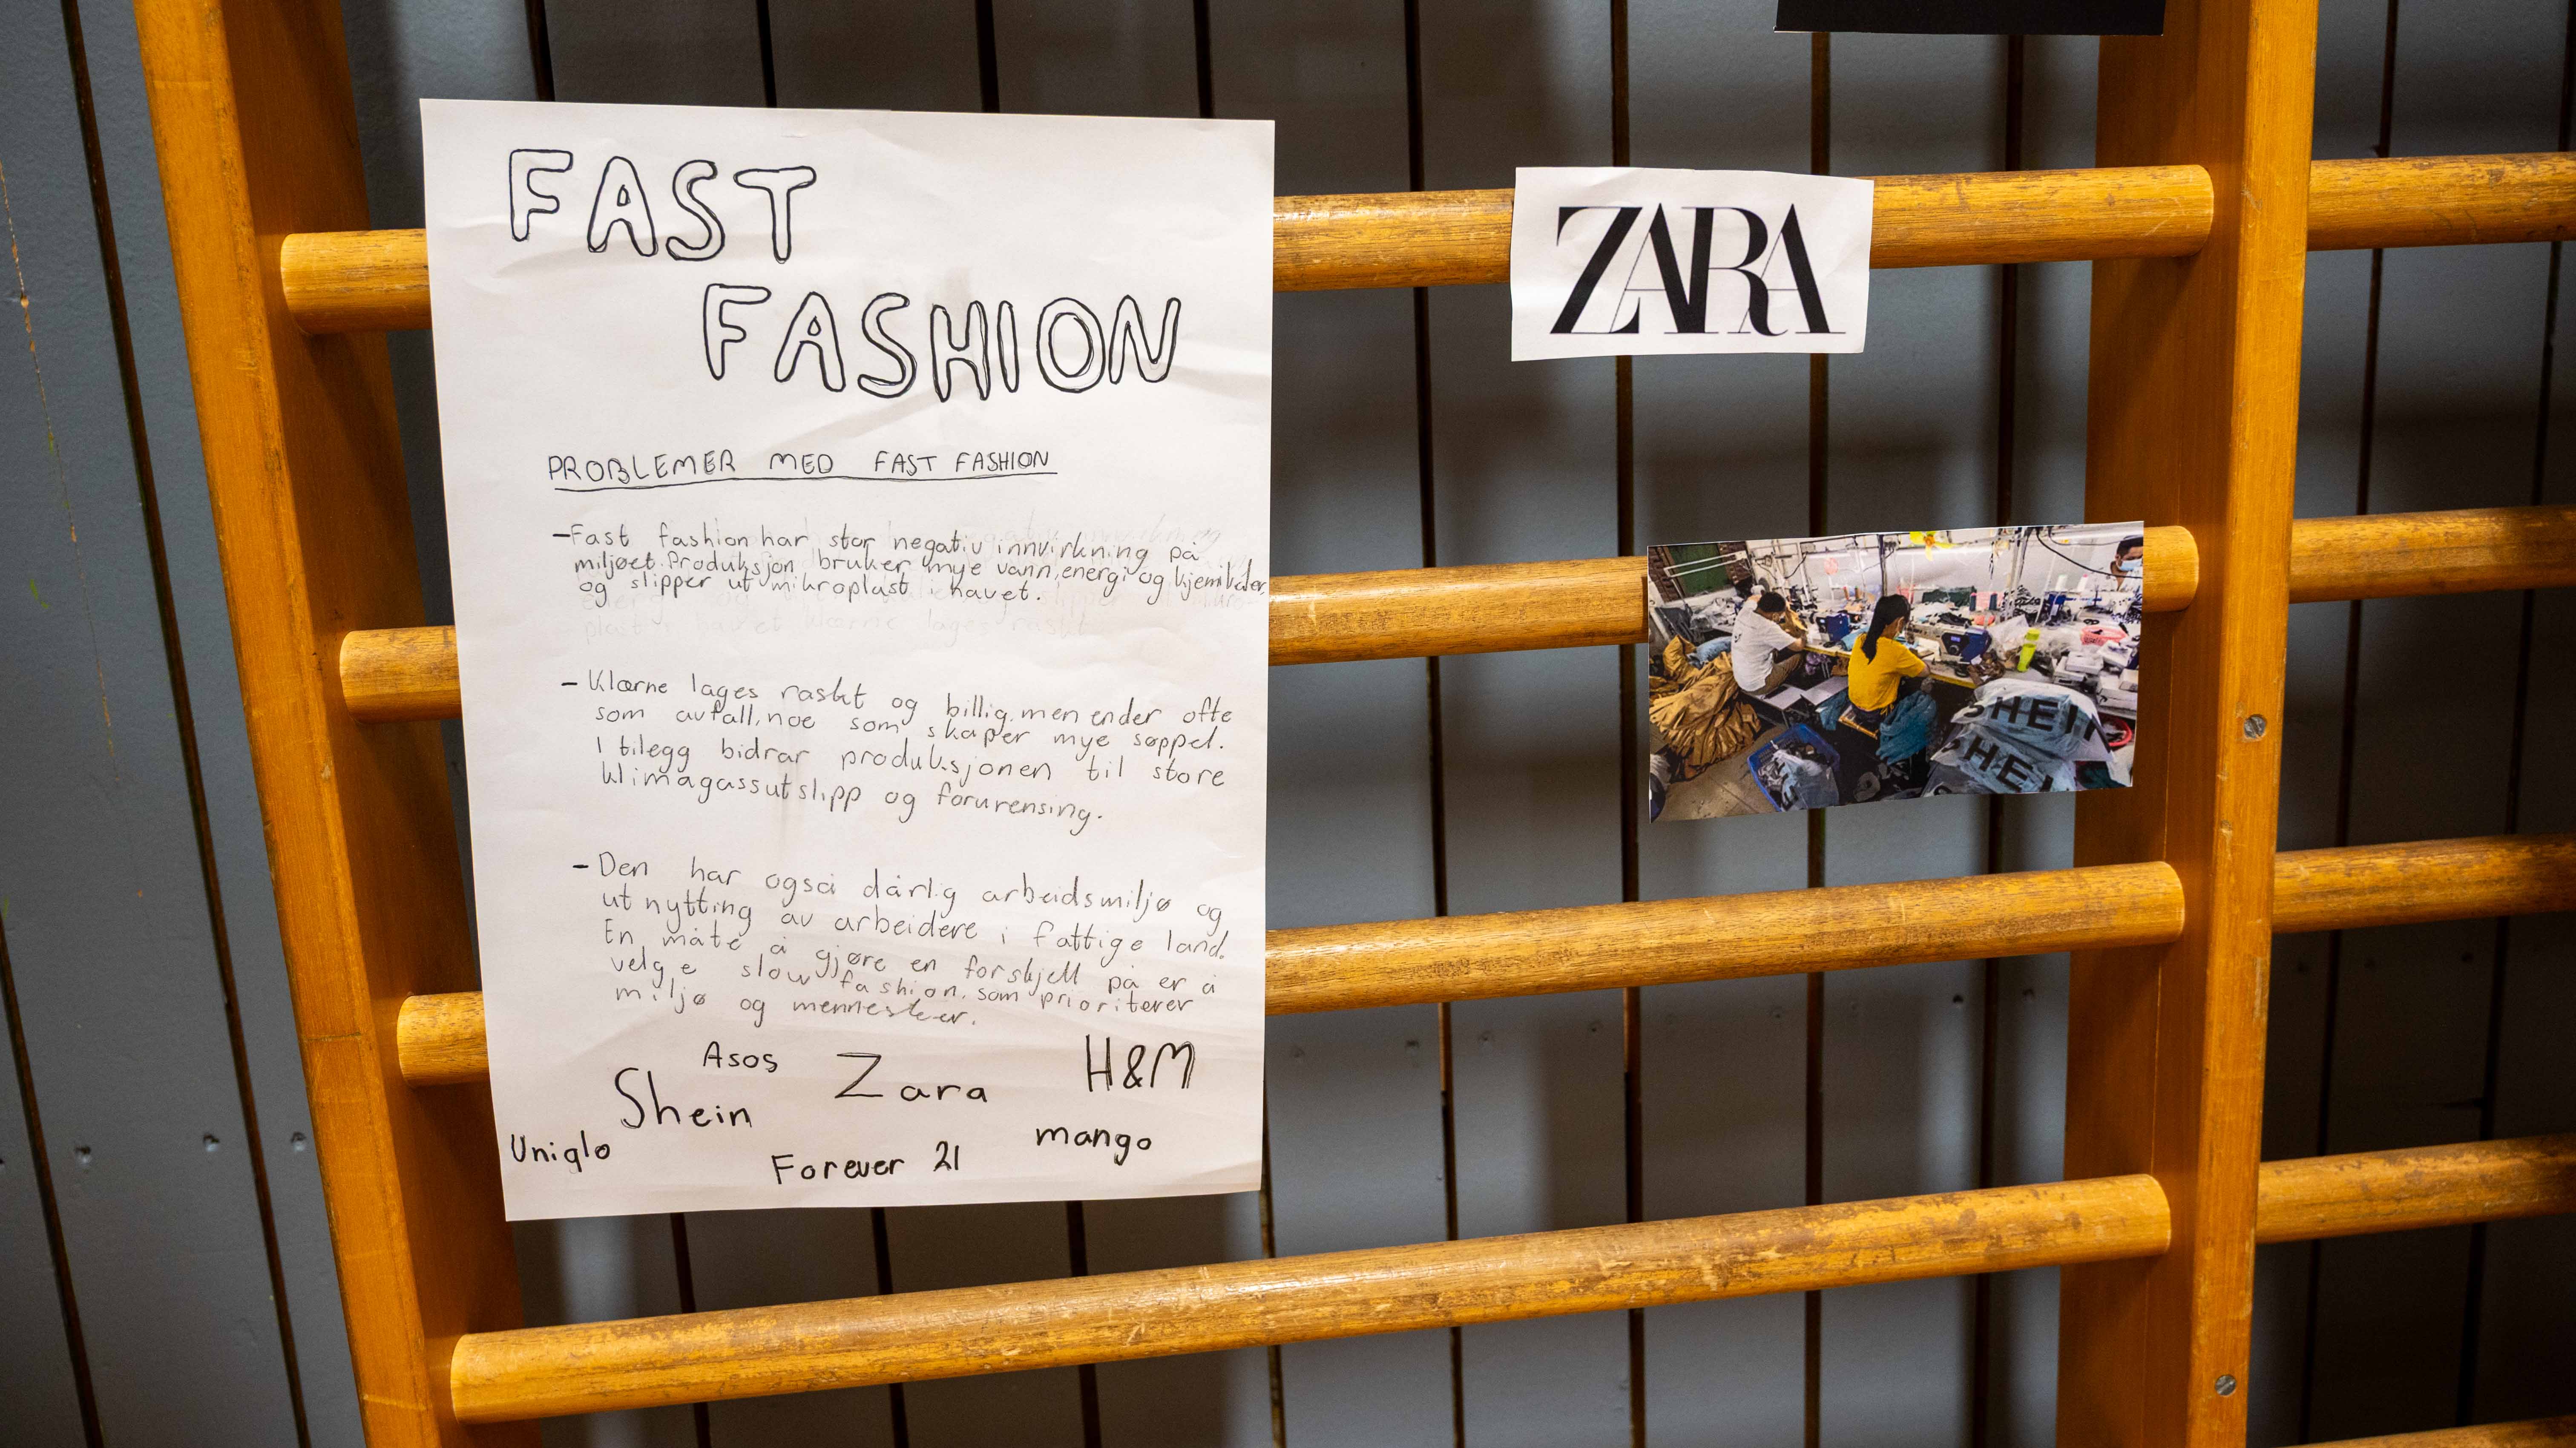 FAST
FASHION
PROBLEMER MED FAST FASHION
-Fast fashion har stor negativ innvirkning på
miljøet. Produksjon bruker mye vann, energi og kjemikalier,
og slipper ut mikroplast i havet.
- Klærne lages raskt og billig, men ender ofte
som avfall, noe som skaper mye søppel.
I tilegg bidrar produksjonen til store
klimagassutslipp og forurensing.
- Den har også dårlig arbeidsmiljø og
utnytting av arbeidere i fattige land.
En måte å gjøre en forskjell på er å
velge slow fashion, som prioriterer
miljø og mennesker.
Asos
Shein
Zara
H&M
Uniqlo
Forever 21
mango
ZARA
SHEIN
SHEI